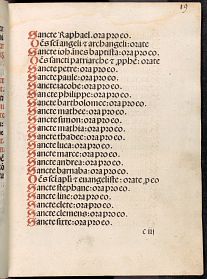 19
Sancte Raphael. ora pro eo.
Oẽs sct̃i angeli ⁊ archangeli: orate
Sancte iohãnes baptista: ora pro eo.
Oẽs sancti patriarche ⁊ ꝓphẽ: orate
Sancte petre: ora pro eo.
Sancte paule: ora pro eo.
Sancte iacobe: ora pro eo.
Sancte philippe: ora pro eo.
Sancte bartholomee: ora pro eo.
Sancte mathee: ora pro eo.
Sancte simon: ora pro eo.
Sancte mathia: ora pro eo.
Sancte thadee: ora pro eo.
Sancte luca: ora pro eo.
Sancte marce: ora pro eo.
Sancte andrea: ora pro eo.
Sancte barnaba: ora pro eo.
Oẽs sct̃i apl̃i ⁊ euangeliste: orate ꝓ eo
Sancte stephane: ora pro eo.
Sancte line: ora pro eo.
Sancte clete: ora pro eo.
Sancte clemens: ora pro eo.
Sancte sixte: ora pro eo.
c iii